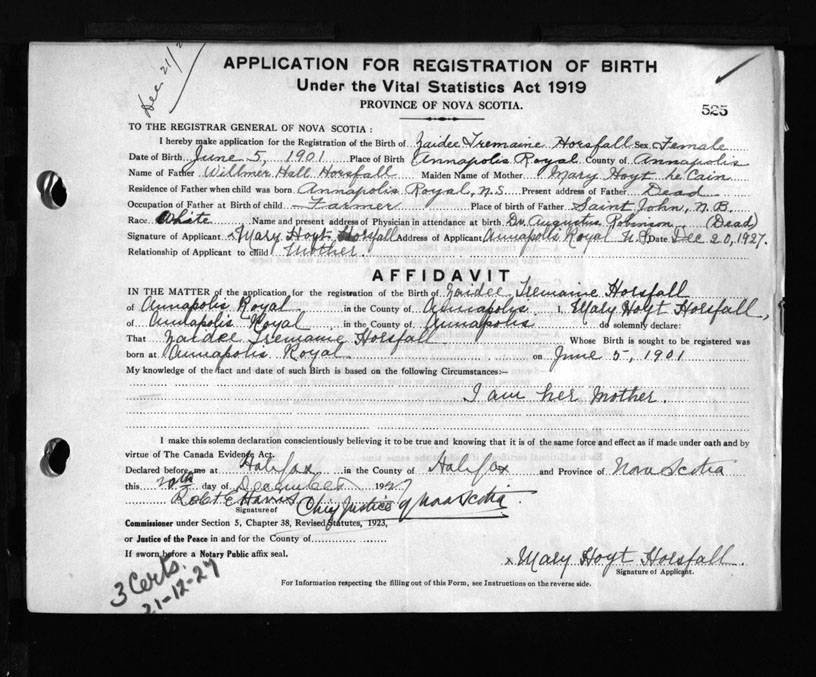 Dec 21/2
APPLICATION FOR REGISTRATION OF BIRTH
Under the Vital Statistics Act 1919
PROVINCE OF NOVA SCOTIA.
525
TO THE REGISTRAR GENERAL OF NOVA SCOTIA :
I hereby make application for the Registration of the Birth of Zaidee Tremaine Horsfall Sex Female
Date of Birth June 5, 1901 Place of Birth Annapolis Royal County of Annapolis
Name of Father Willmer Hall Horsfall Maiden Name of Mother Mary Hoyt LeCain
Residence of Father when child was born Annapolis Royal, N.S Present address of Father Dead
Occupation of Father at Birth of child Farmer Place of birth of Father Saint John, N.B.
Race White Name and present address of Physician in attendance at birth Dr. Augustus Robinson (Dead)
Signature of Applicant x Mary Hoyt Horsfall Address of Applicant Annapolis Royal N.S Date Dec 20, 1927.
Relationship of Applicant to child Mother.
AFFIDAVIT
IN THE MATTER of the application for the registration of the Birth of Zaidee Tremaine Horsfall
of Annapolis Royal in the County of Annapolis I, Mary Hoyt Horsfall,
of Annapolis Royal in the County of Annapolis do solemnly declare:
That Zaidee Tremaine Horsfall Whose Birth is sought to be registered was
born at Annapolis Royal on June 5, 1901
My knowledge of the fact and date of such Birth is based on the following Circumstances:—
I am her Mother.
I make this solemn declaration conscientiously believing it to be true and knowing that it is of the same force and effect as if made under oath and by
virtue of The Canada Evidence Act.
Declared before me at Halifax in the County of Halifax and Province of Nova Scotia
this 20th day of December 1927
Robt E Harris Chief Justice of Nova Scotia.
Signature of
Commissioner under Section 5, Chapter 38, Revised Statutes, 1923,
or Justice of the Peace in and for the County of
If sworn before a Notary Public affix seal.
x Mary Hoyt Horsfall.
Signature of Applicant.
3 Certs.
21-12-27
For Information respecting the filling out of this Form, see Instructions on the reverse side.